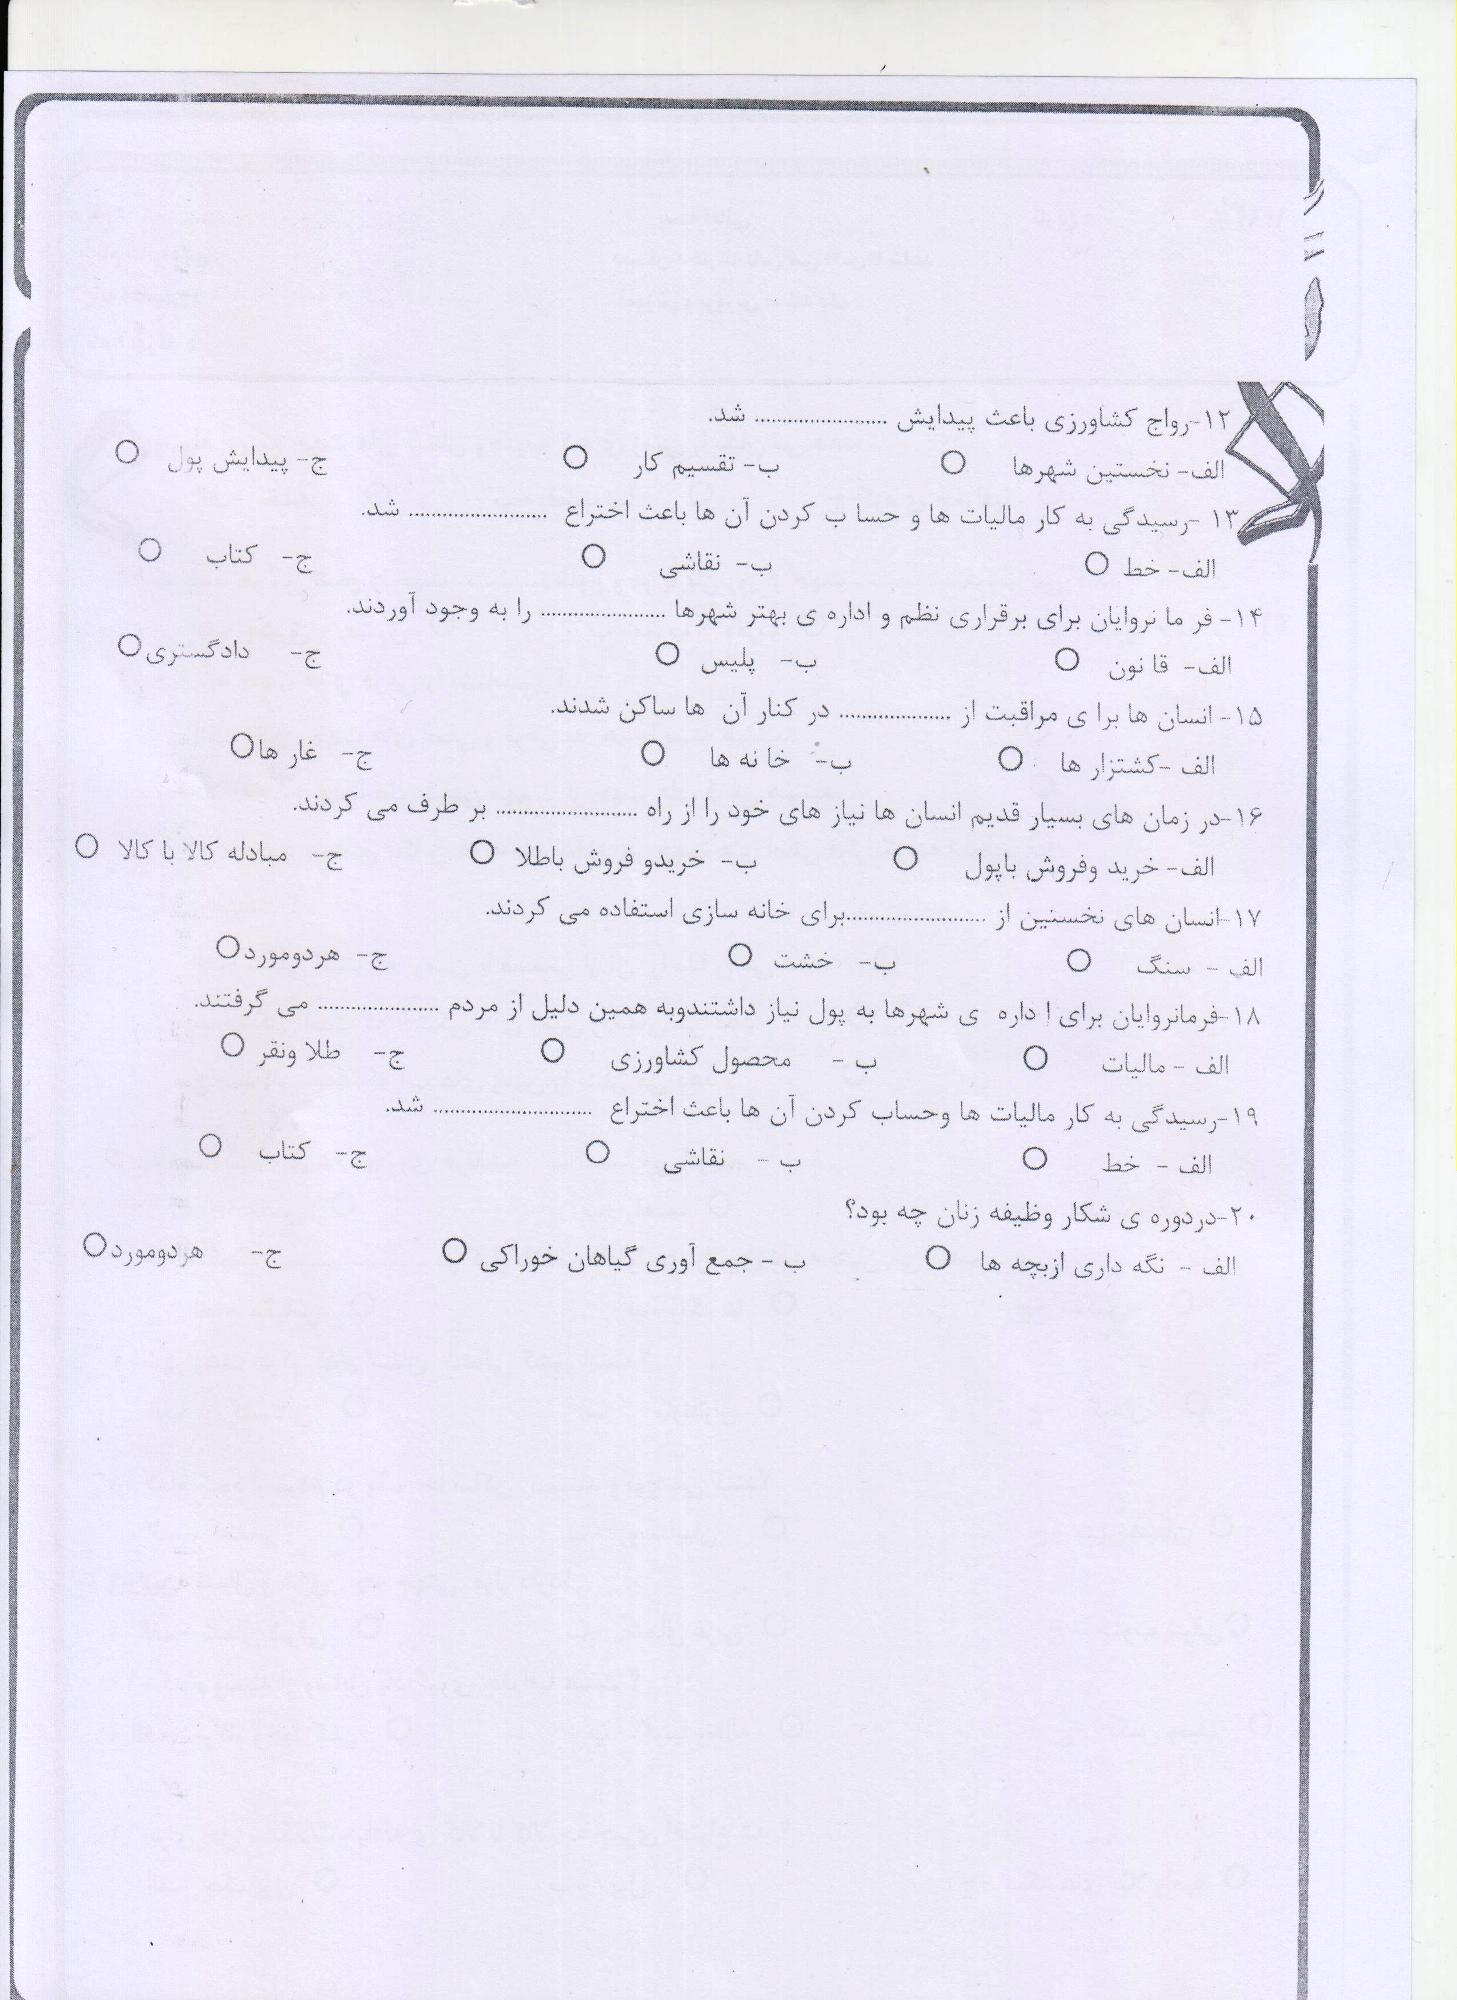 ۱۲-رواج کشاورزی باعث پیدایش ........................ شد.
الف- نخستین شهرها ○ ب- تقسیم کار ○ ج- پیدایش پول ○
۱۳ -رسیدگی به کار مالیات ها و حسا ب کردن آن ها باعث اختراع ......................... شد.
الف- خط ○ ب- نقاشی ○ ج- کتاب ○
۱۴- فر ما نروایان برای برقراری نظم و اداره ی بهتر شهرها ....................... را به وجود آوردند.
الف- قا نون ○ ب- پلیس ○ ج- دادگستری ○
۱۵- انسان ها برا ی مراقبت از .................... در کنار آن ها ساکن شدند.
الف -کشتزار ها ○ ب- خا نه ها ○ ج- غار ها ○
۱۶-در زمان های بسیار قدیم انسان ها نیاز های خود را از راه .......................... بر طرف می کردند.
الف- خرید وفروش باپول ○ ب- خریدو فروش باطلا ○ ج- مبادله کالا با کالا ○
۱۷-انسان های نخسنین از .........................برای خانه سازی استفاده می کردند.
الف - سنگ ○ ب- خشت ○ ج- هردومورد ○
۱۸-فرمانروایان برای ا داره ی شهرها به پول نیاز داشتندوبه همین دلیل از مردم ...................... می گرفتند.
الف - مالیات ○ ب - محصول کشاورزی ○ ج- طلا ونقر ○
۱۹-رسیدگی به کار مالیات ها وحساب کردن آن ها باعث اختراع ............................. شد.
الف - خط ○ ب - نقاشی ○ ج- کتاب ○
۲۰-دردوره ی شکار وظیفه زنان چه بود؟
الف - نگه داری ازبچه ها ○ ب - جمع آوری گیاهان خوراکی ○ ج- هردومورد ○